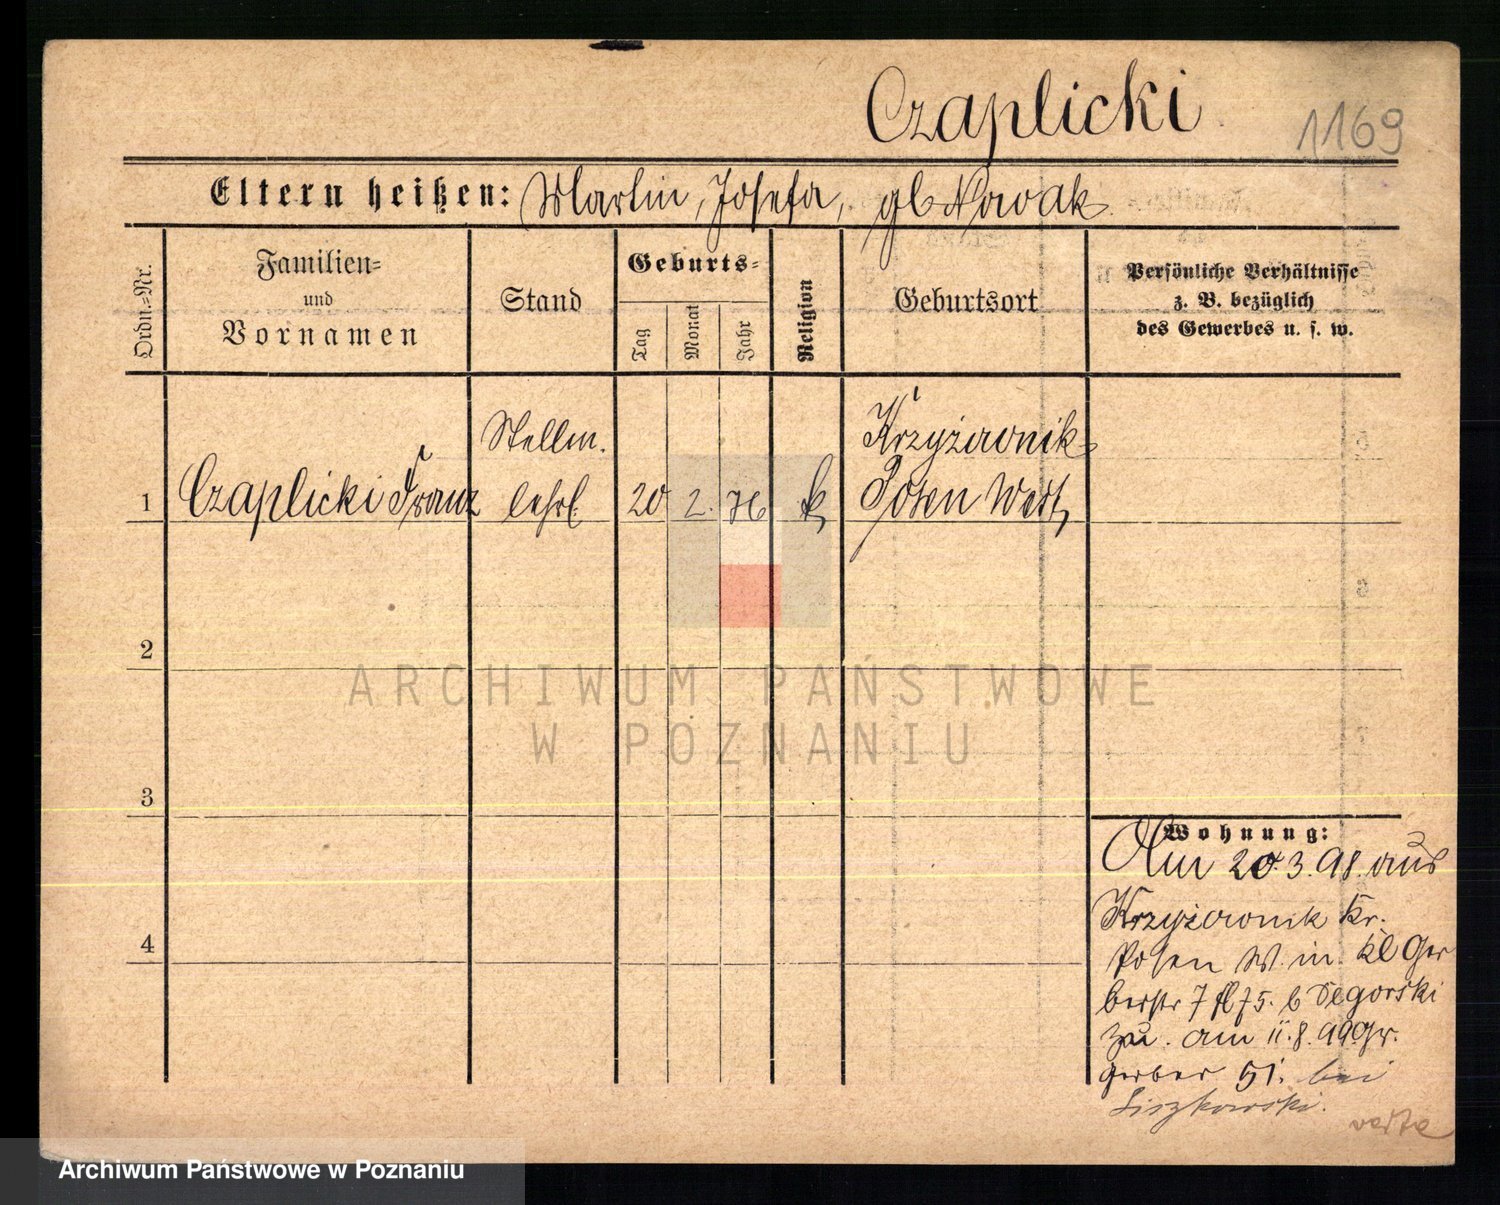 Czaplicki
1169
Eltern heißen: Martin, Josefa, gb Nowak
Ordn.=Nr.
Familien=
und
Vornamen
Stand
Geburts=
Tag
Monat
Jahr
Religion
Geburtsort
Persönliche Verhältnisse
z. B. bezüglich
des Gewerbes u. s. w.
1
Czaplicki Franz
Stellm.
lehrl.
20
2.
76
k
Krzyżownik
Posen West
2
3
4
Wohnung:
Am 20.3.98. aus
Krzyżownik Kr.
Posen W. in Kl Ger
berstr 7 75. b
zu. am 11.8.99. Gr.
Gerber 51. bei
Liszkowski.
verte
ARCHIWUM PAŃSTWOWE
W POZNANIU
Archiwum Państwowe w Poznaniu